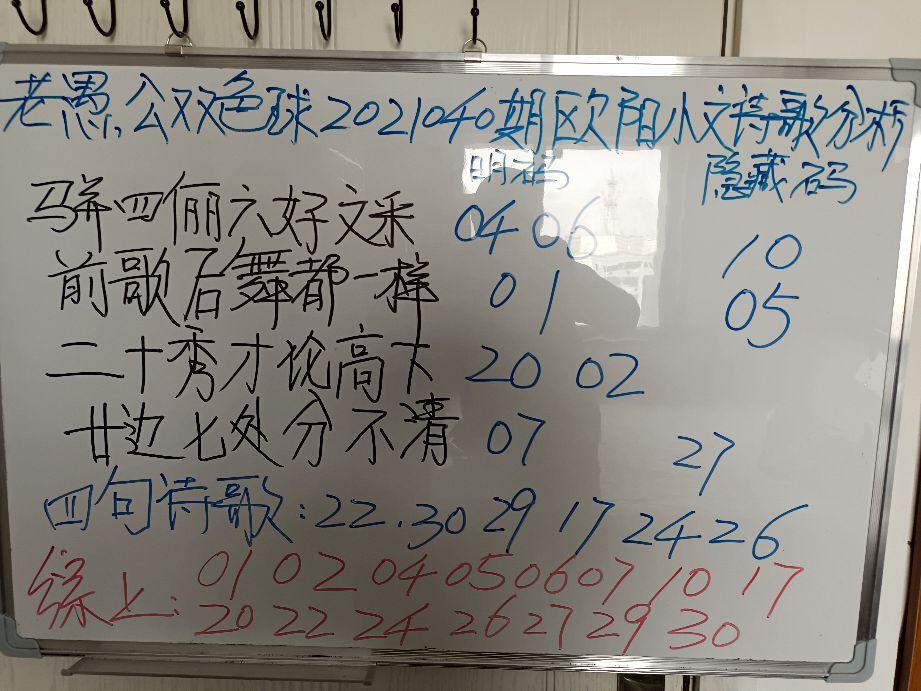 老愚公双色球2021040期欧阳小文诗歌分析
明码 隐藏码
骈四俪六好文采 04 06 10
前歌后舞都一样 01 05
二十秀才论高下 20 02
廿边七处分不清 07 27
四句诗歌:22.30 29 17 24 26
综上:01 02 04 05 06 07 10 17
20 22 24 26 27 29 30